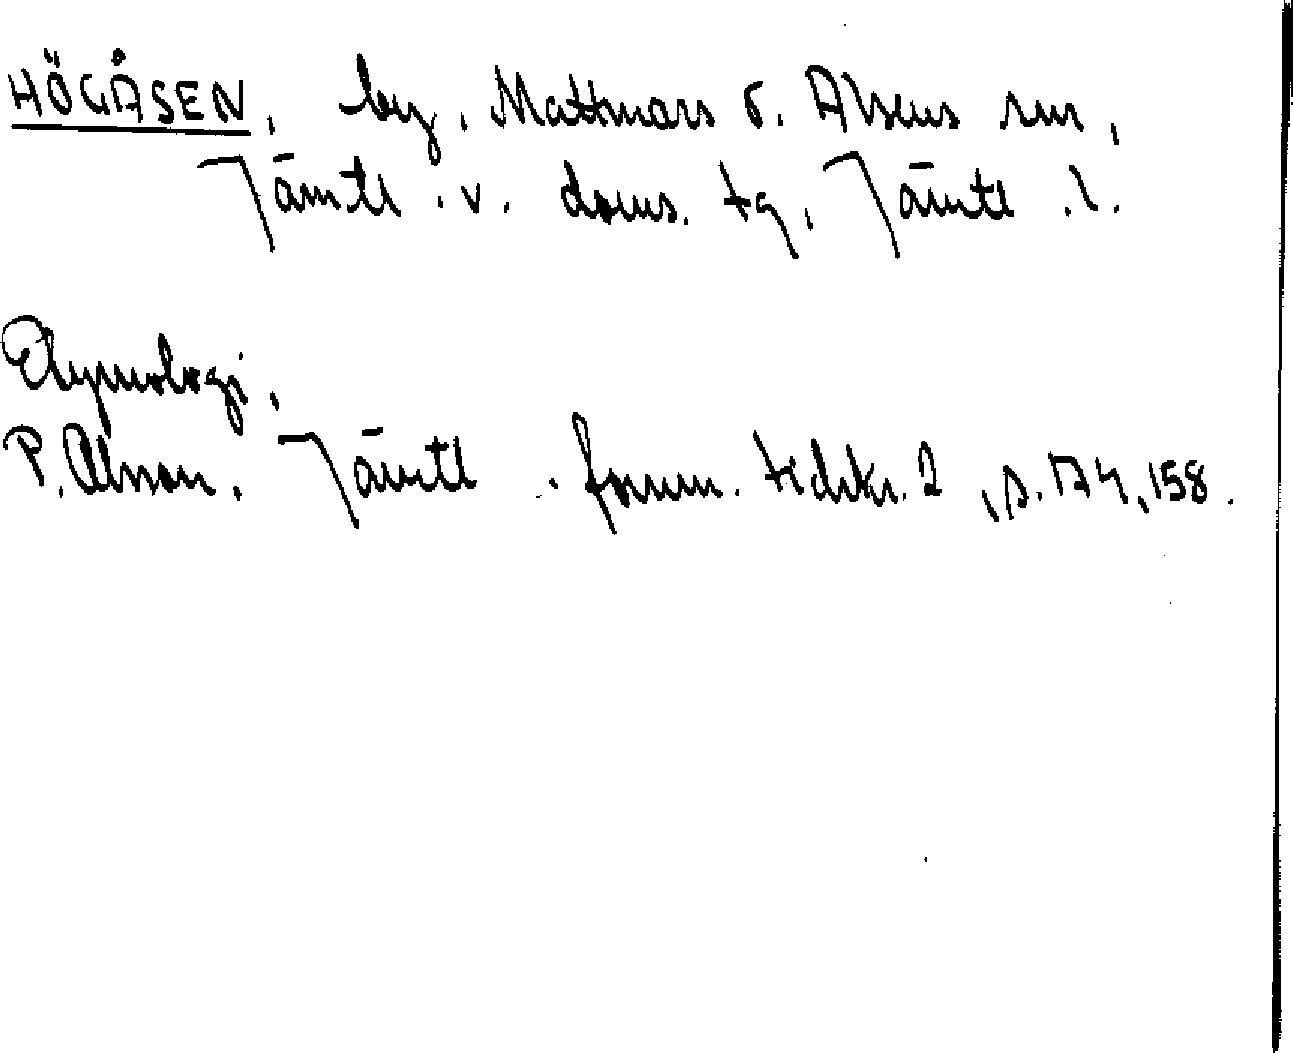 HÖGÅSEN, by, Mattmars o. Alsens snr,
Jämtl. v. doms. tg, Jämtl. l.
Etymologi,
P. Olsson, Jämtl. fornm. tidskr. 2, s. 174, 158.